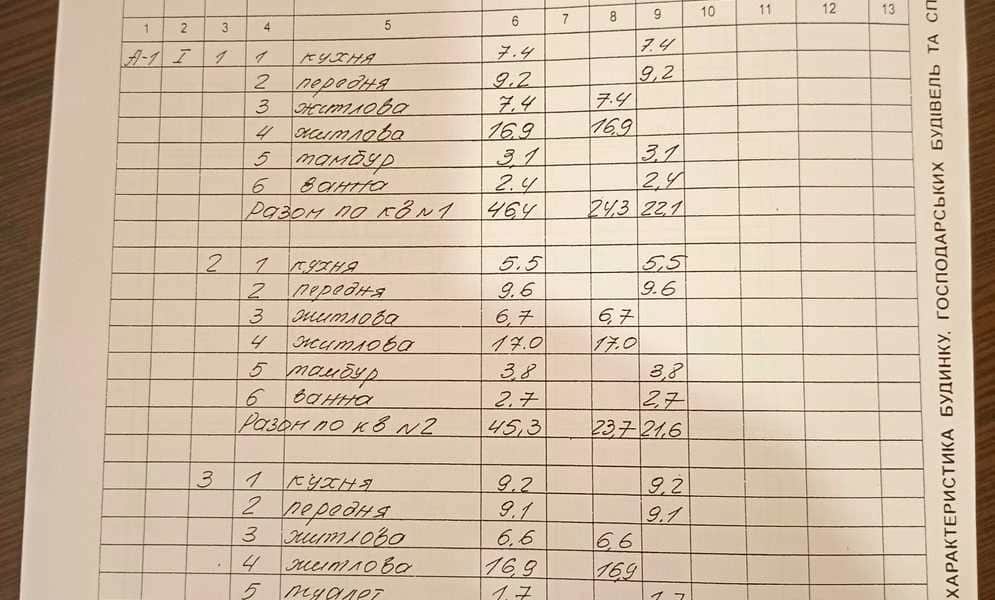 1 2 3 4 5 6 7 8 9 10 11 12 13
А-1 I 1 1 кухня 7.4 7.4
2 передня 9.2 9,2
3 житлова 7.4 7.4
4 житлова 16,9 16,9
5 тамбур 3,1 3,1
6 ванна 2.4 2,4
Разом по кв №1 46,4 24,3 22,1
2 1 кухня 5.5 5,5
2 передня 9.6 9.6
3 житлова 6,7 6,7
4 житлова 17.0 17.0
5 тамбур 3,8 3,8
6 ванна 2.7 2,7
Разом по кв №2 45,3 23,7 21,6
3 1 кухня 9.2 9,2
2 передня 9.1 9.1
3 житлова 6.6 6,6
4 житлова 16,9 16,9
5 туалет 1.7 1.7
ХАРАКТЕРИСТИКА БУДИНКУ, ГОСПОДАРСЬКИХ БУДІВЕЛЬ ТА СП